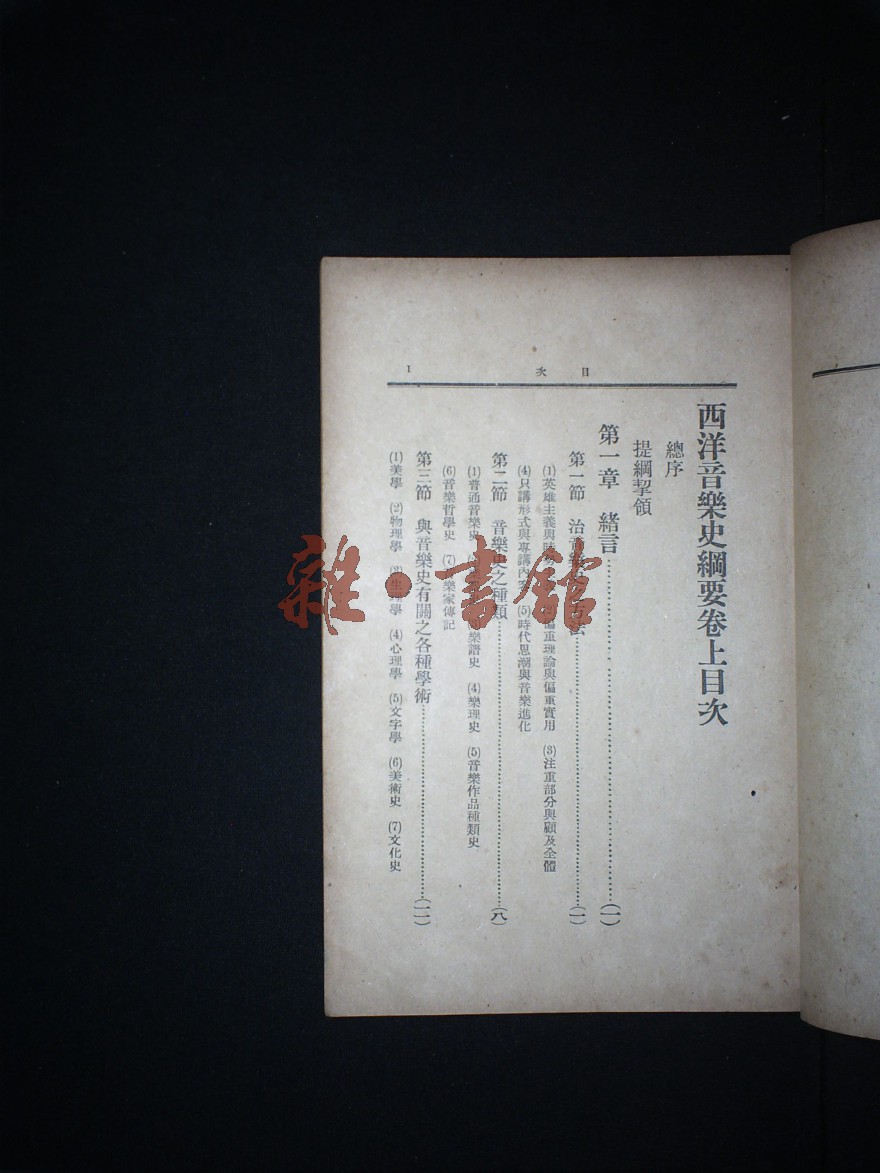 目次
1
西洋音樂史綱要卷上目次
總序
提綱挈領
第一章 緒言……(一)
第一節 治音樂史之方法……(一)
(1)英雄主義與時勢 偏重理論與偏重實用 (3)注重部分與顧及全體
(4)只講形式與專講內容 (5)時代思潮與音樂進化
第二節 音樂史之種類……(八)
(1)普通音樂史 樂譜史 (4)樂理史 (5)音樂作品種類史
(6)音樂哲學史 (7)音樂家傳記
第三節 與音樂史有關之各種學術……(一一)
(1)美學 (2)物理學 (3)生理學 (4)心理學 (5)文字學 (6)美術史 (7)文化史
雜·書館